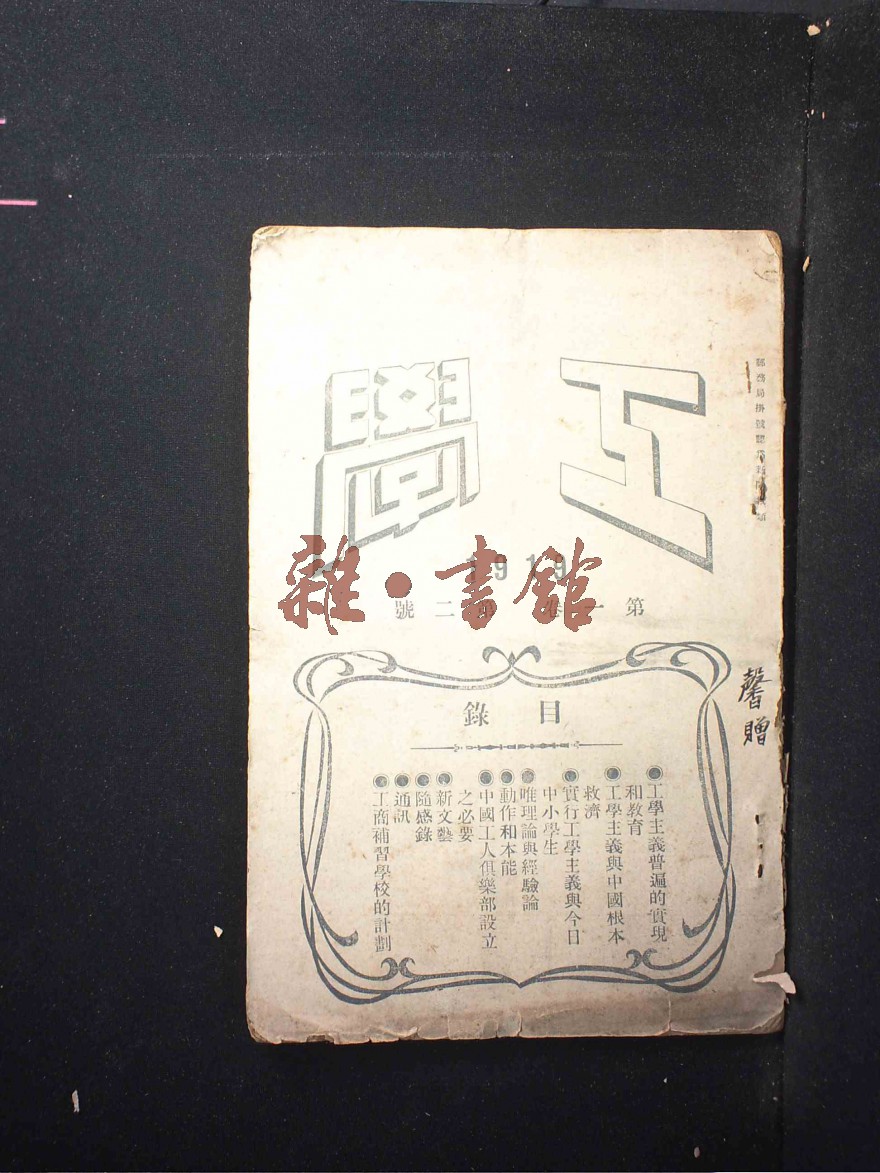 郵務局掛號認爲新聞紙類
工學
1919
第一卷 第二號
雜·書館
馨贈
目錄
●工學主義普遍的實現
和教育
●工學主義與中國根本
救濟
●實行工學主義與今日
中小學生
●唯理論與經驗論
●動作和本能
●中國工人俱樂部設立
之必要
●新文藝
●隨感錄
●通訊
●工商補習學校的計劃